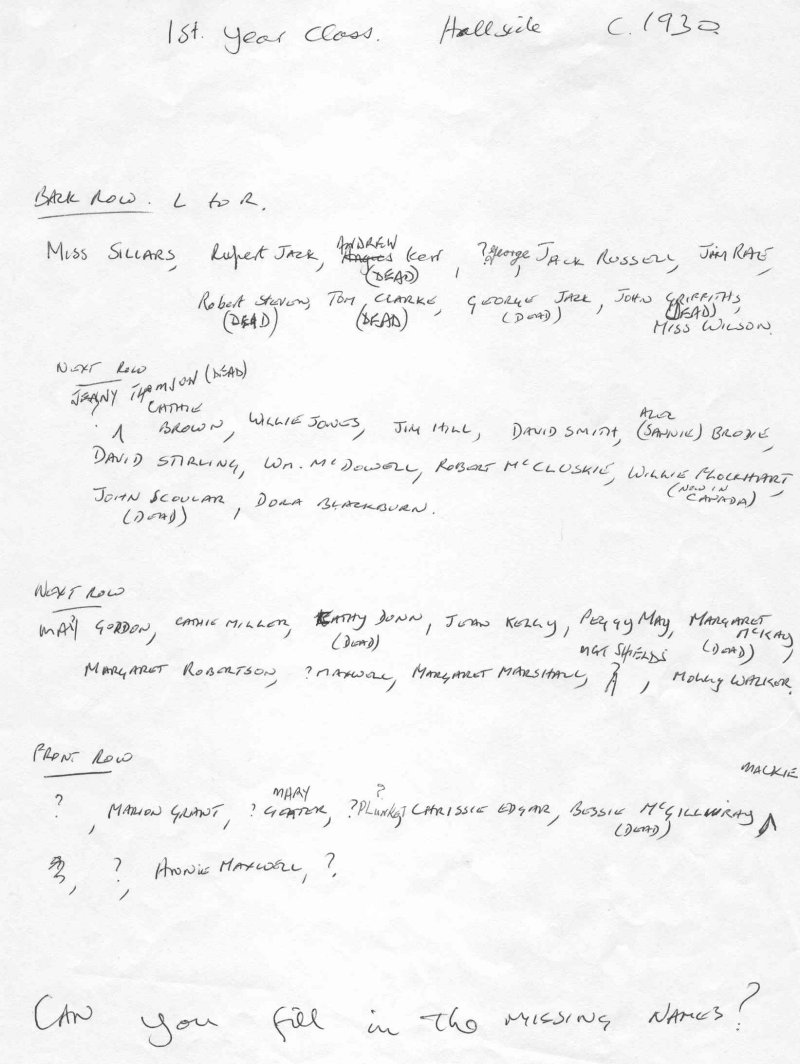 1st. Year Class. Hallside C. 1930
BACK ROW. L to R.
ANDREW
MISS SILLARS, Rupert JACK, Kerr, ? George, JACK RUSSELL, JIM RAE,
(DEAD)
Robert STEVEN, TOM CLARKE, GEORGE JACK, JOHN GRIFFITHS,
(DEAD) (DEAD) (DEAD) (DEAD)
MISS WILSON.
NEXT ROW
JENNY THOMSON (DEAD)
CATHIE ALEC
BROWN, WILLIE JONES, JIM HILL, DAVID SMITH, (SANNIE) BRODIE,
DAVID STIRLING, WM. McDOWELL, ROBERT McCLUSKIE, WILLIE FLOCKHART,
(NOW IN CANADA)
JOHN SCOULAR, DORA BLACKBURN.
(DEAD)
NEXT ROW
MAY GORDON, CATHIE MILLER, KATHY DUNN, JEAN KELLY, PEGGY MAY, MARGARET McKAY,
(DEAD) (DEAD)
MGT SHIELDS
MARGARET ROBERTSON, ? MAXWELL, MARGARET MARSHALL, ?, MOLLY WALKER.
FRONT ROW
MACKIE
MARY ?
?, MARION GRANT, ? , ? PLUNKET, CHRISSIE EDGAR, BESSIE McGILLIVRAY,
(DEAD)
?, ?, ANNIE MAXWELL, ?.
CAN you fill in the MISSING NAMES?